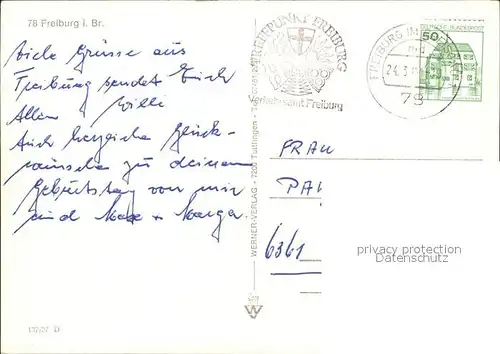 78 Freiburg i. Br.
Viele Grüsse aus
Freiburg sendet Euch
Allen Willi
Auch herzliche Glück-
wünsche zu deinem
Geburtstag von mir
und
TREFFPUNKT FREIBURG
Verkehrsamt Freiburg
FREIBURG IM
24.3
78
50
DEUTSCHE BUNDESPOST
WERNER-VERLAG - 7200 Tuttlingen -
FRAU
6361
privacy protection
Datenschutz
W